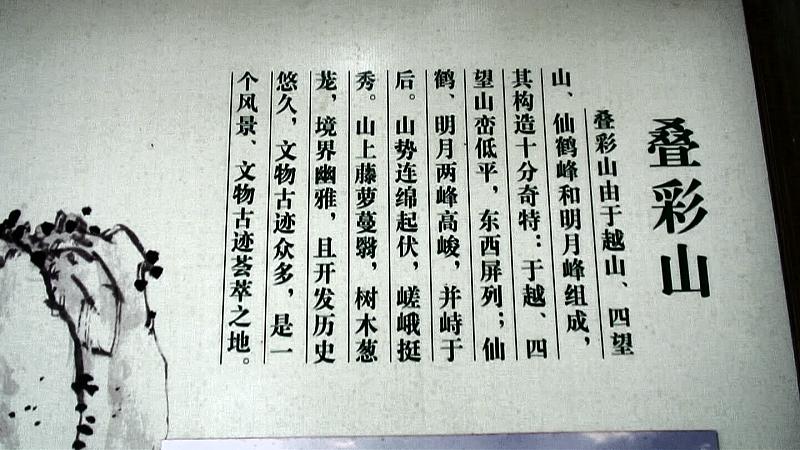 叠彩山
叠彩山由于越山、四望
山、仙鹤峰和明月峰组成，
其构造十分奇特：于越、四
望山峦低平，东西屏列；仙
鹤、明月两峰高峻，并峙于
后。山势连绵起伏，嵯峨挺
秀。山上藤萝蔓翳，树木葱
茏，境界幽雅，且开发历史
悠久，文物古迹众多，是一
个风景、文物古迹荟萃之地。